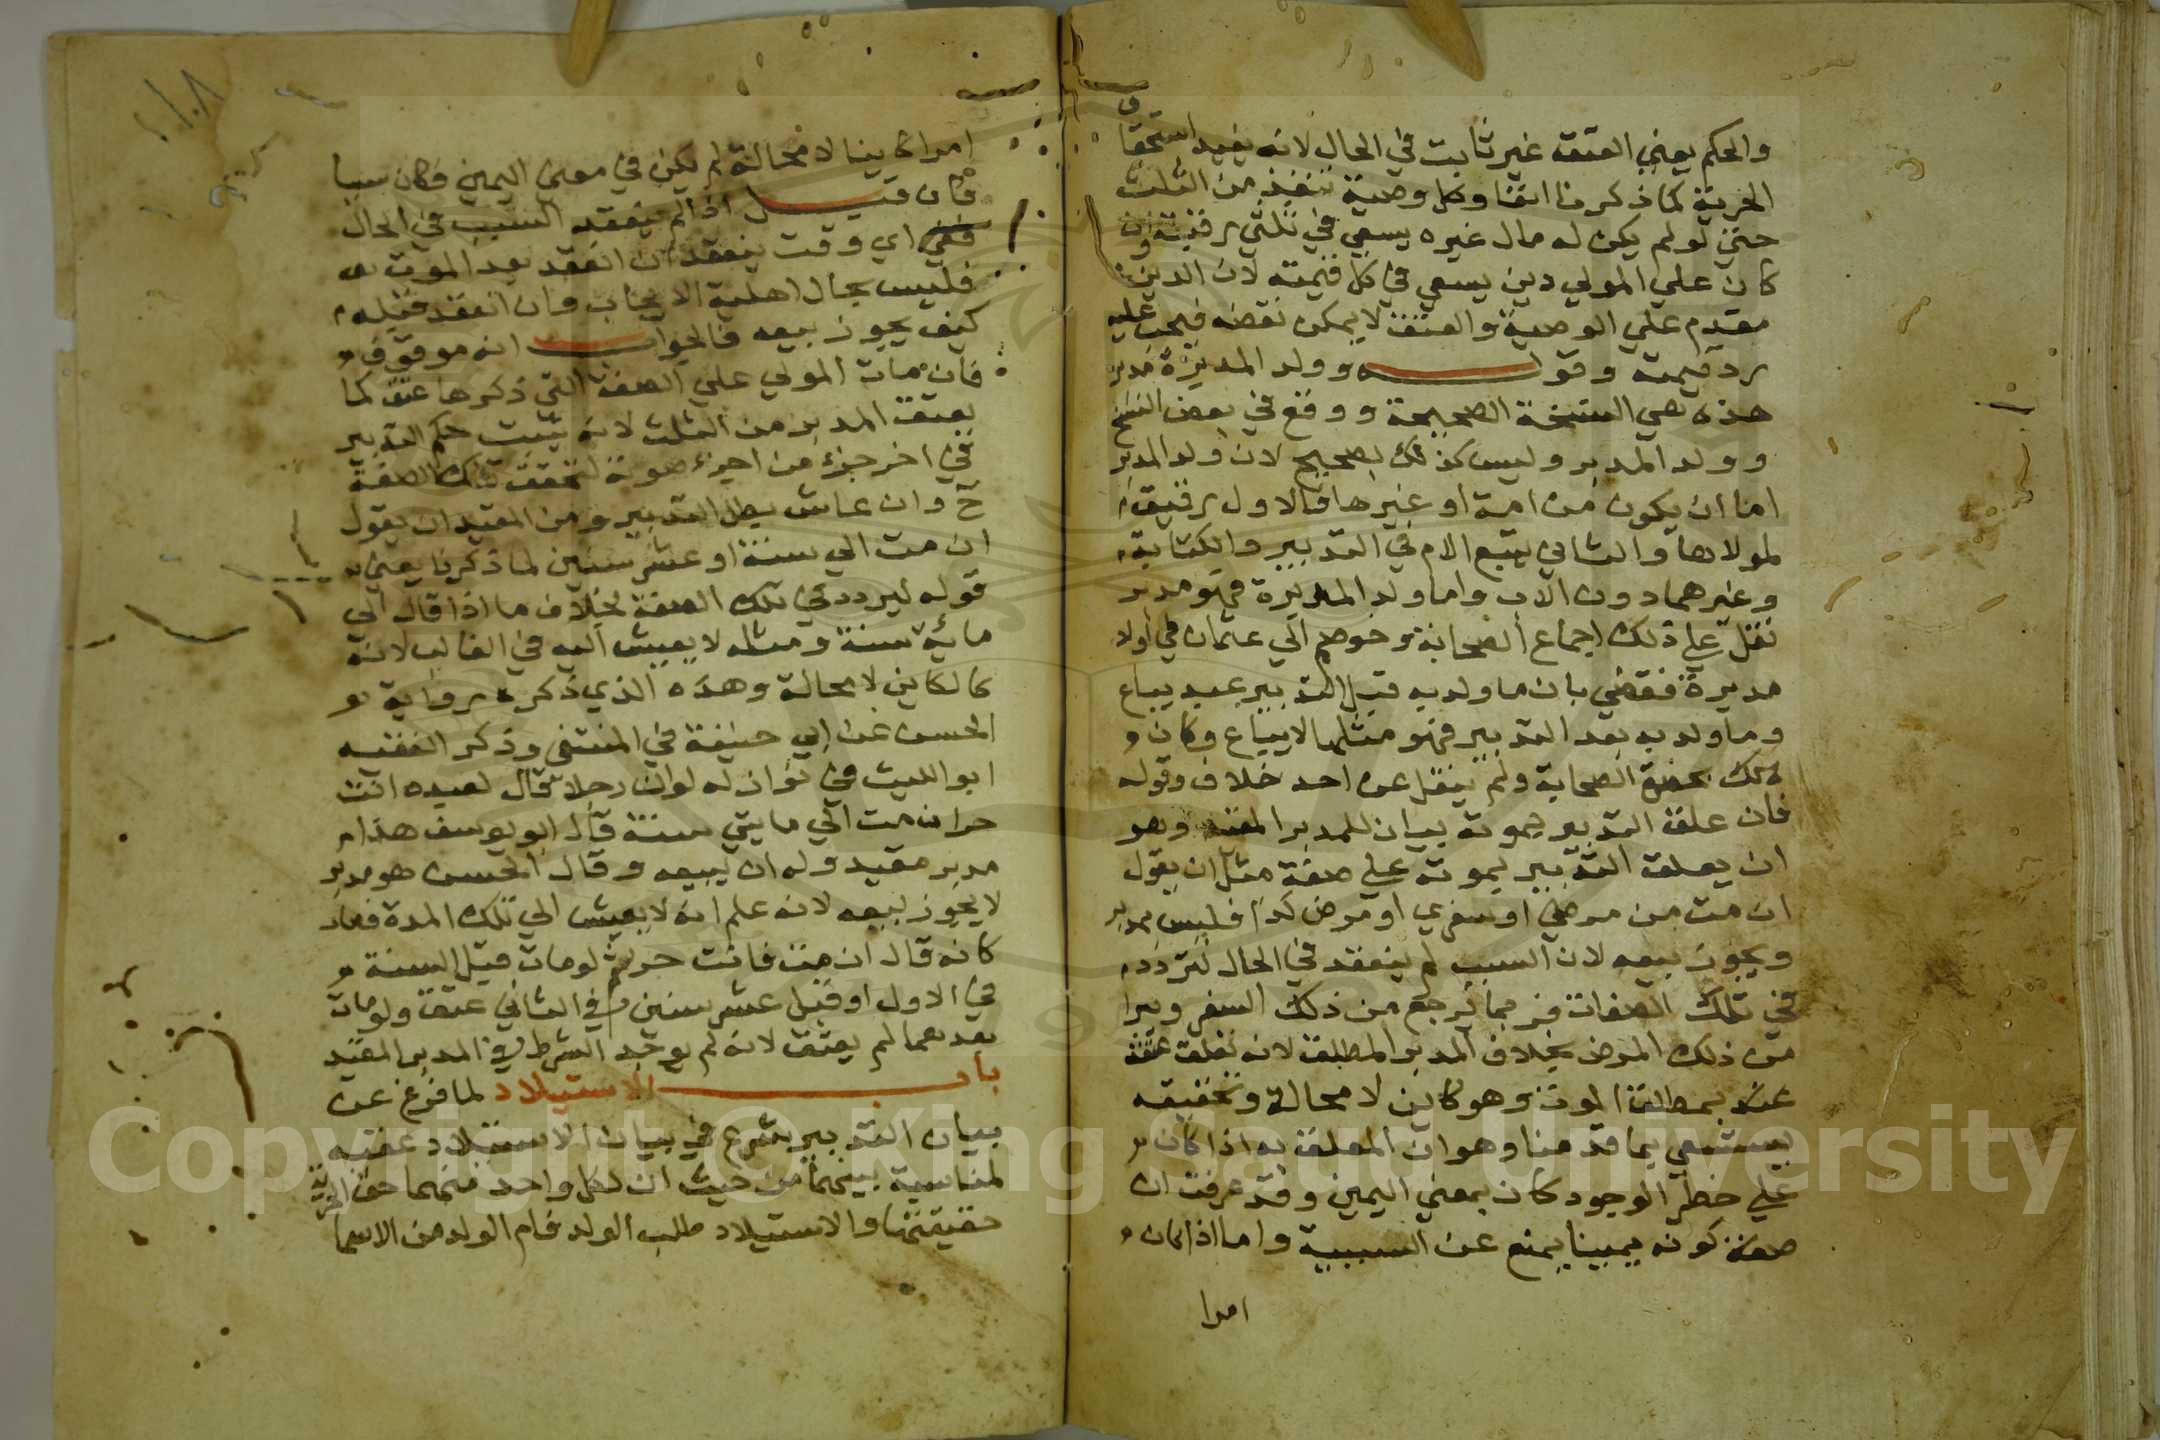 والحكم يعني العتق غير ثابت في الحال لانه يفيد استحقاق
الحرية كما ذكرنا انفا وكل وصية تنفذ من الثلث
حتى لو لم يكن له مال غيره يسعى في ثلثي رقبته وان
كان علي المولي دين يسعي في كل قيمته لان الدين
مقدم علي الوصية والعتق لا يمكن نقضه فيجب عليه
رد قيمته وقوله وولد المدبرة مدبر
هذه هي النسخة الصحيحة ووقع في بعض النسخ
وولد المدبر وليس كذلك بصحيح لان ولد المدبر
اما ان يكون من امة او غيرها فالاول رقيق
لمولاها والثاني يتبع الام في التدبير والكتابة
وغيرهما دون الاب واما ولد المدبرة فهو مدبر
نقل علي ذلك اجماع الصحابة وخوصم الي عثمان في اولاد
مدبرة فقضي بان ما ولدته قبل التدبير عبد يباع
وما ولدته بعد التدبير فهو مثلها لا يباع وكان
ذلك بحضرة الصحابة ولم ينقل عن احد خلاف وقوله
فان علق التدبير بموته بيان للمدبر المقيد وهو
ان يعلق التدبير بموته علي صفة مثل ان يقول
ان مت من مرضي او سفري او مرض كذا فليس بمدبر
ويجوز بيعه لان السبب لم ينعقد في الحال لتردده
في تلك الصفات فربما يرجع من ذلك السفر ويبرا
من ذلك المرض بخلاف المدبر المطلق لانه تعلق عتقه
عنده بمطلق الموت وهو كاين لا محالة وتحقيقه
يستدعي بما قدمنا وهو ان المعلق به اذا كان
علي خطر الوجود كان بمعني اليمين وقد عرفت ان
صفة كونه يمينا يمنع عن السببية واما اذا كان
امرا
١٠٨
امرا كاينا لا محالة لم يكن في معنى اليمين فكان سببا
فان قيل اذا لم ينعقد السبب في الحال
ففي اي وقت ينعقد ان انعقد بعد الموت
فليس بحال اهلية الايجاب وان انعقد قبله
كيف يجوز بيعه فالجواب انه موقوف
فان مات المولي علي الصفة التي ذكرها عتق كما
يعتق المدبر من الثلث لانه يثبت حكم التدبير
في اخر جزء من اجزء حياته لتحقق تلك الصفة
ح وان عاش بطل التدبير ومن المقيد ان يقول
ان مت الي سنة او عشر سنين لما ذكرنا يعني
قوله لتردد في تلك الصفة بخلاف ما اذا قال الي
مائة سنة ومثله لا يعيش اليه في الغالب لانه
كالكاين لا محالة وهذه الذي ذكره رواية
الحسن عن ابي حنيفة في المنتقى وذكر الفقيه
ابو الليث في نوازله لو ان رجلا قال لعبده انت
حر ان مت الي مايتي سنة قال ابو يوسف هذا
مدبر مقيد وله ان يبيعه وقال الحسن هو مدبر
لا يجوز بيعه لانه علم انه لا يعيش الي تلك المدة فصار
كانه قال ان مت فانت حر ثم لو مات قبل السنة
في الاول او قبل عشر سنين في الثاني عتق ولو مات
بعدهما لم يعتق لانه لم يوجد الشرط في المدبر المقيد
باب الاستيلاد لما فرغ عن
بيان التدبير شرع في بيان الاستيلاد عقبه
لمناسبة بينهما من حيث ان لكل واحد منهما حق الحرية
حقيقتها والاستيلاد طلب الولد فام الولد من الاسما